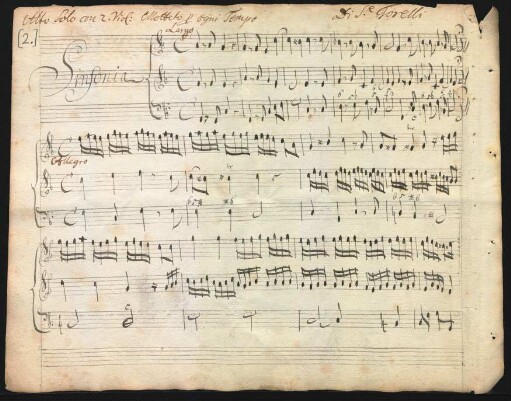 Alto Solo con 2. Viol: Mottetto p ogni Tempo Di S.r Torelli
[2.]
Largo
Sinfonia
Allegro